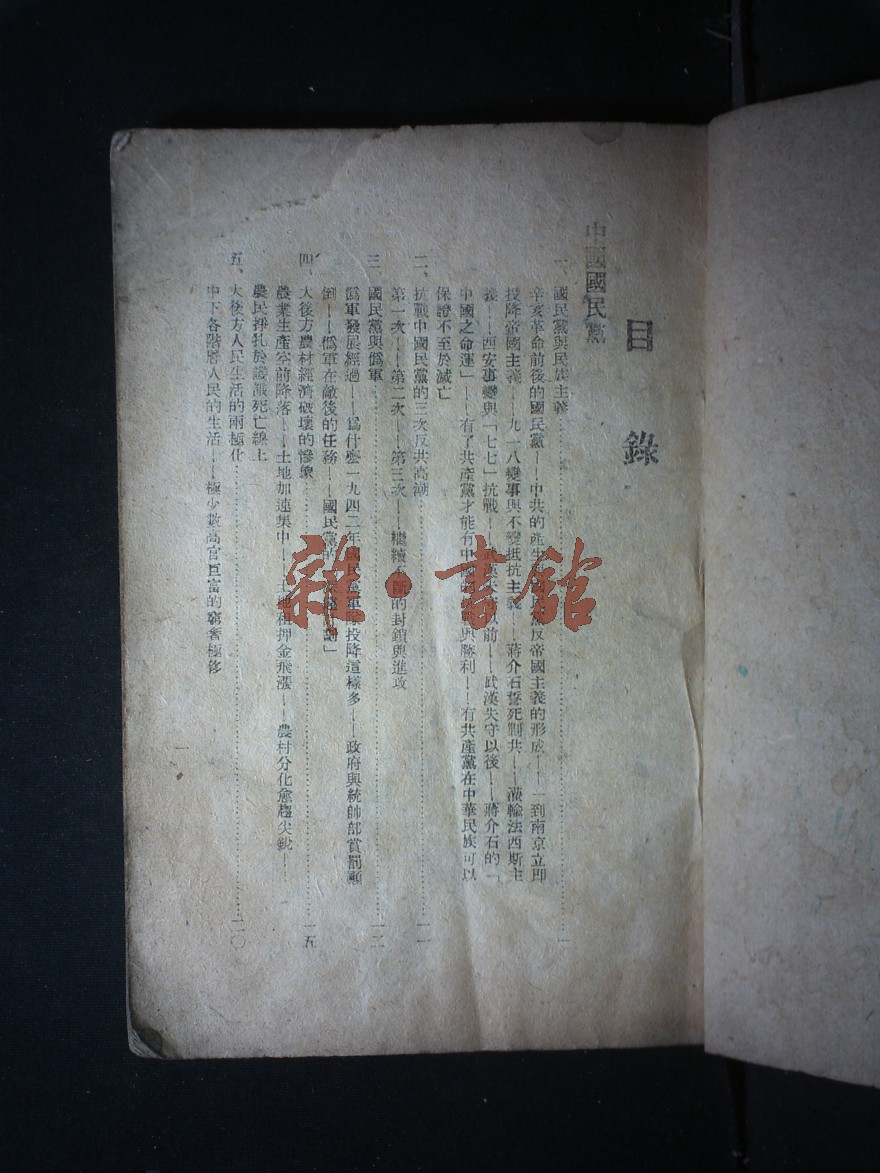 目錄
中國國民黨
一、國民黨與民族主義……一
辛亥革命前後的國民黨——中共的產生與國民黨反帝國主義的形成——一到南京立即
投降帝國主義——九一八變事與不抵抗主義——蔣介石誓死剿共——灌輸法西斯主
義——西安事變與「七七」抗戰——武漢失守以前——武漢失守以後——蔣介石的「
中國之命運」——有了共產黨才能有中國的與勝利——有共產黨在中華民族可以
保證不至於滅亡
二、抗戰中國民黨的三次反共高潮……一一
第一次——第二次——第三次——繼續不斷的封鎖與進攻
三、國民黨與僞軍……一二
僞軍發展經過——爲什麼一九四二年國民黨軍隊投降這樣多——政府與統帥部賞罰顚
倒——僞軍在敵後的任務——國民黨的」
四、大後方農村經濟破壞的慘象……一五
農業生產空前降落——土地加速集中——土地租押金飛漲——農村分化愈趨尖銳——
農民掙扎於饑饿死亡線上
五、大後方人民生活的兩極化……二〇
中下各階層人民的生活——極少數高官巨富的窮奢極侈
一
雜·書館